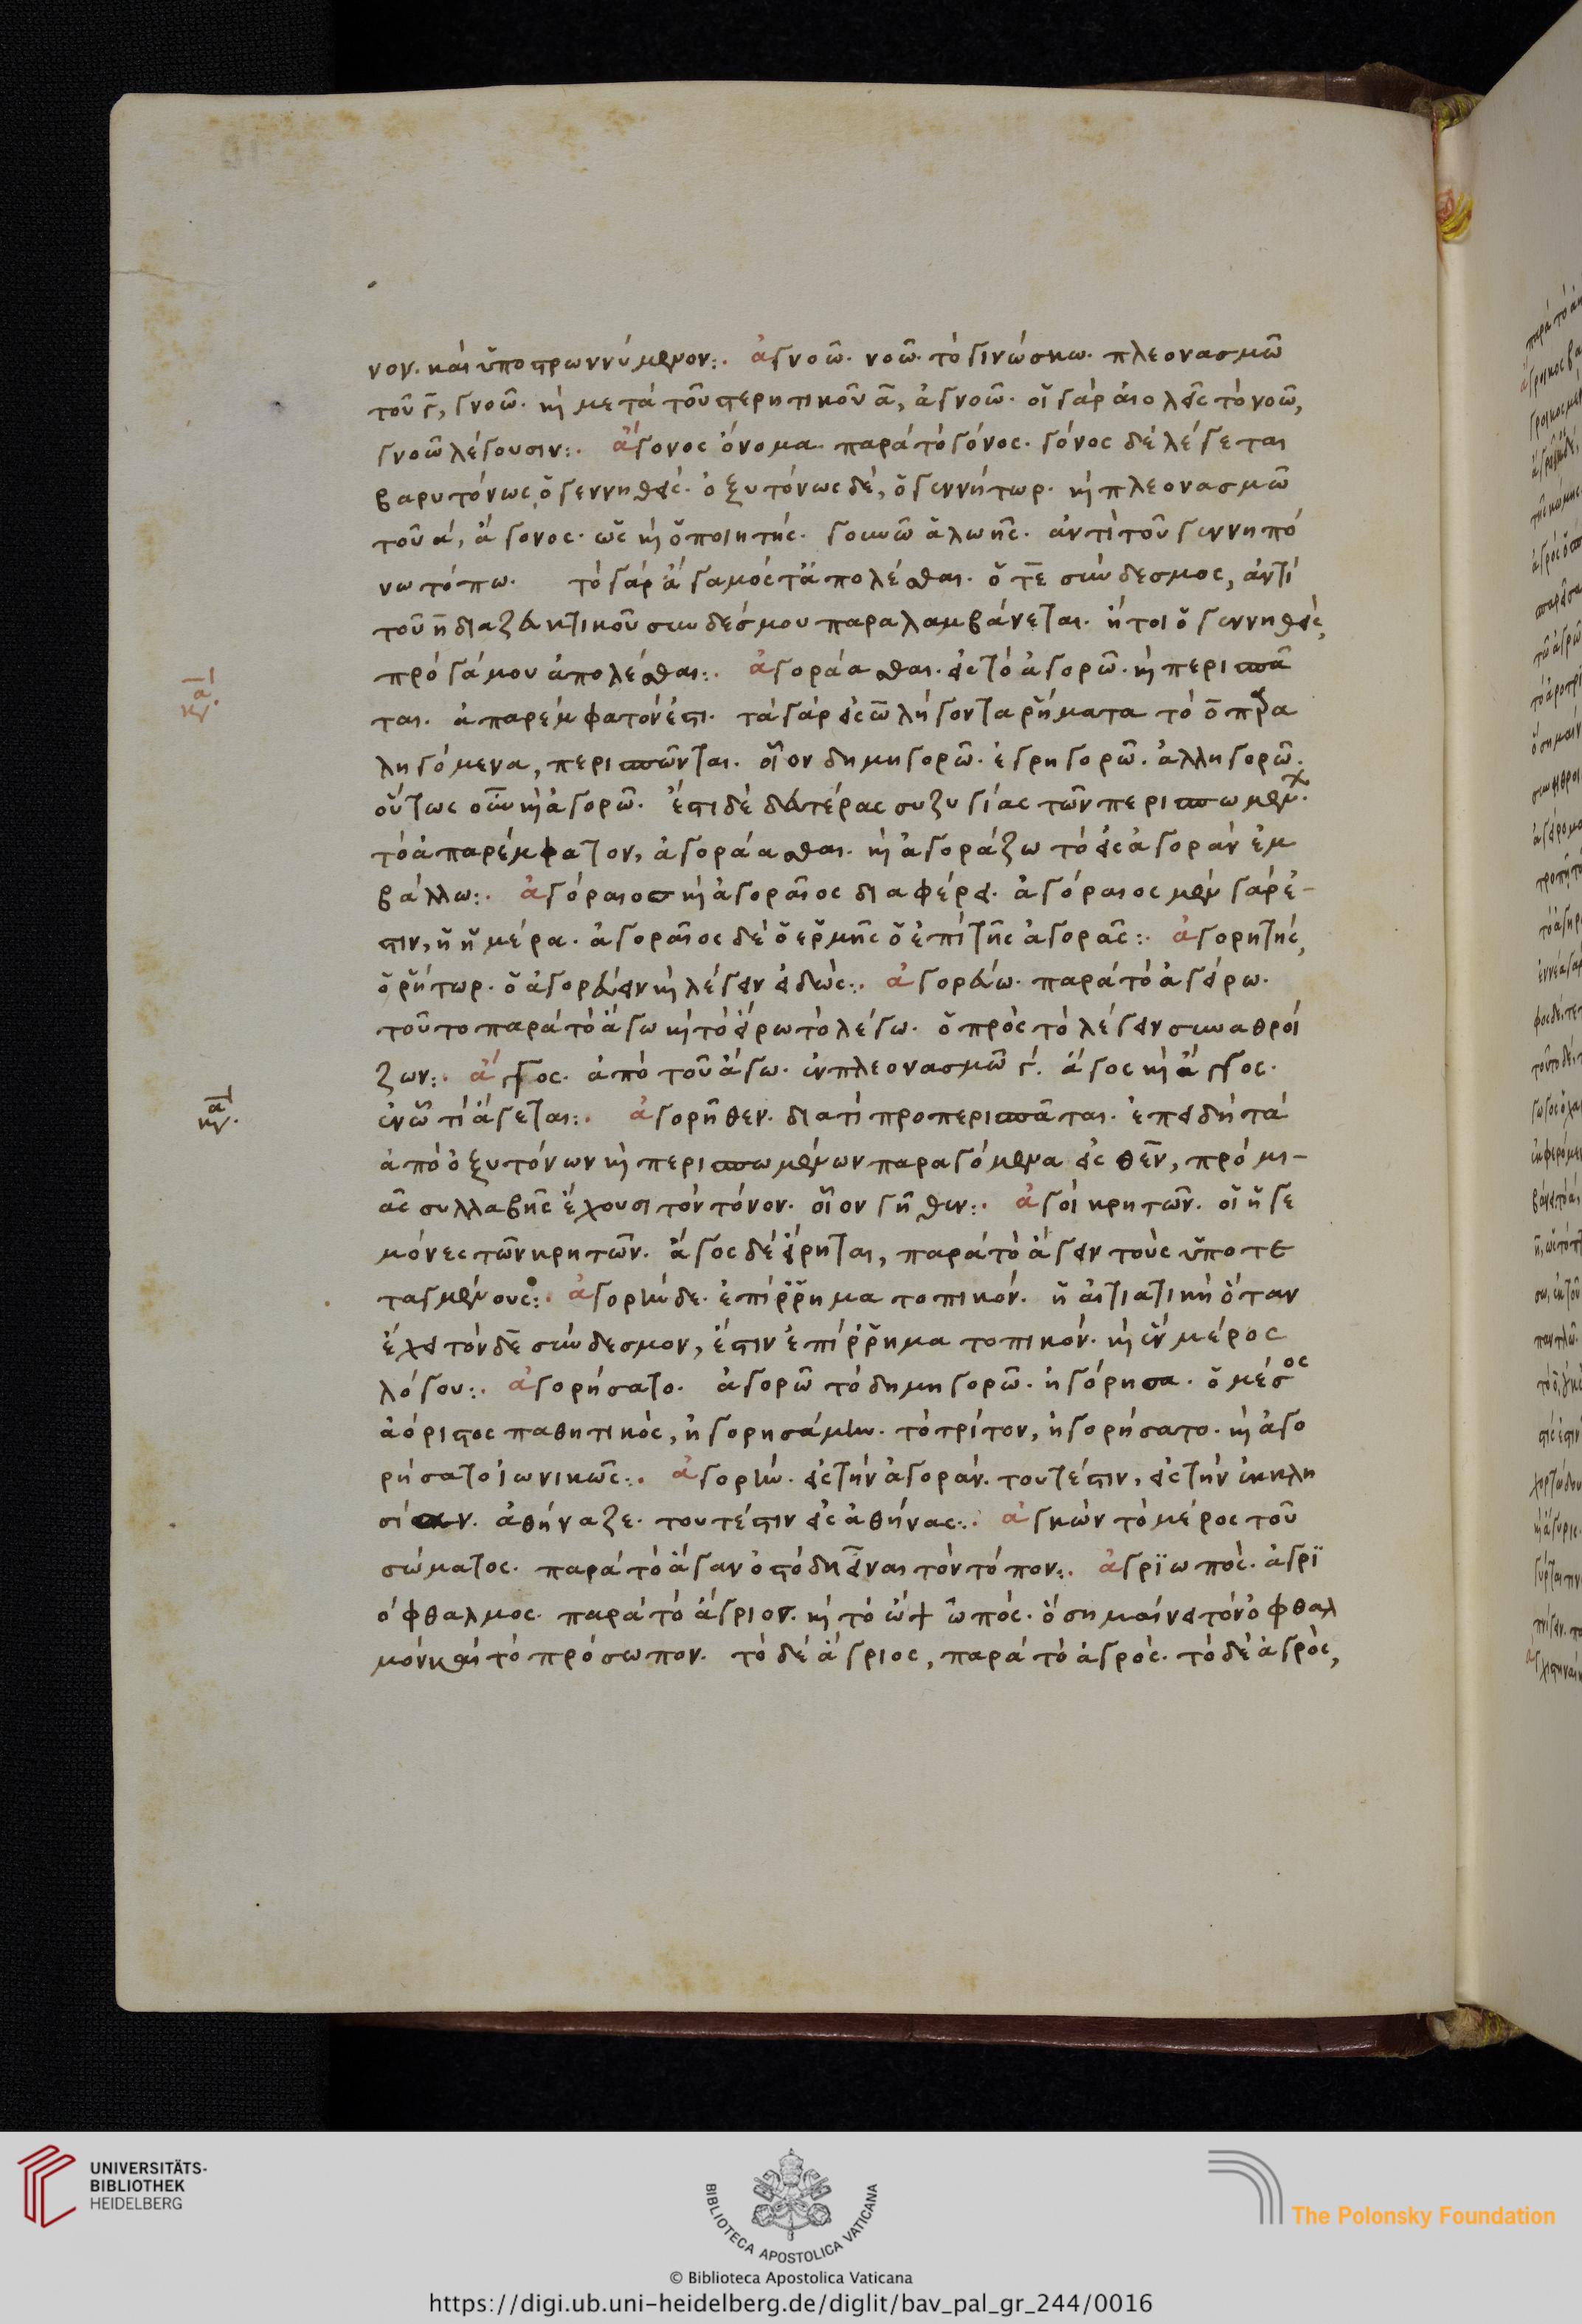 νον. καὶ ὑποστρωννύμενον:. ἀγνοῶ. νοῶ. τὸ γινώσκω. πλεονασμῶ
τοῦ γ, γνοῶ. κὶ μετὰ τοῦ στερητικοῦ α, ἀγνοῶ. οἱ γὰρ αἰολεῖς τὸ νοῶ,
γνοῶ λέγουσιν:. ἄγονος ὄνομα παρὰ τὸ γόνος. γόνος δὲ λέγεται
βαρυτόνως ὁ γεννηθείς. ὀξυτόνως δὲ, ὁ γεννήτωρ. κὶ πλεονασμῶ
τοῦ α, ἄγονος. ὡς κὶ ὁ ποιητής. γουνῶ ἁλωῆς. ἀντὶ τοῦ γεννηπό
νω τόπω. τὸ γὰρ ἄγαμός τ' ἀπολέσθαι. ὁ τὲ σύνδεσμος, ἀντὶ
τοῦ η διαζευκτικοῦ συνδέσμου παραλαμβάνεται. ἤτοι ὁ γεννηθεὶς,
πρὸ γάμου ἀπολέσθαι:. ἀγοράασθαι. εἰς τὸ ἀγορῶ. κὶ περισπᾶ
ται. ἀπαρέμφατόν ἐστι. τὰ γὰρ εἰς ω λήγοντα ῥήματα τὸ ο πρα
ληγόμενα, περισπῶνται. οἷον δημηγορῶ. ἐγρηγορῶ. ἀλληγορῶ.
οὕτως οὖν κὶ ἀγορῶ. ἔστι δὲ δευτέρας συζυγίας τῶν περισπωμεν.
τὸ ἀπαρέμφατον, ἀγοράασθαι. κὶ ἀγοράζω τὸ εἰς ἀγορὰν ἐμ
βάλλω:. ἀγόραιος κὶ ἀγοραῖος διαφέρει. ἀγόραιος μὲν γάρ ἐ-
στιν, ἡ ἡμέρα. ἀγοραῖος δὲ ὁ ἑρμῆς ὁ ἐπὶ τῆς ἀγορᾶς:. ἀγορητὴς,
ὁ ῥήτωρ. ὁ ἀγορεύειν κὶ λέγειν εἰδώς:. ἀγορεύω. παρὰ τὸ ἀγείρω.
τοῦτο παρὰ τὸ ἄγω κὶ τὸ εἴρω τὸ λέγω. ὁ πρὸς τὸ λέγειν συναθροί
ζων:. ἄγγος. ἀπὸ τοῦ ἄγω. ἐν πλεονασμῶ γ. ἄγος κὶ ἄγγος.
ἐν ᾧ τὶ ἄγεται:. ἀγορῆθεν. διατὶ προπερισπᾶται. ἐπειδὴ τὰ
ἀπὸ ὀξυτόνων κὶ περισπωμένων παραγόμενα εἰς θεν, πρὸ μι-
ᾶς συλλαβῆς ἔχουσι τὸν τόνον. οἷον γῆθεν:. ἀγοὶ κρητῶν. οἱ ἡγε
μόνες τῶν κρητῶν. ἄγος δὲ εἴρηται, παρὰ τὸ ἄγειν τοὺς ὑποτε
ταγμένους:. ἀγορήνδε. ἐπίρρημα τοπικόν. ἡ αἰτιατικὴ ὅταν
ἔχει τὸν δὲ σύνδεσμον, ἔστιν ἐπίρρημα τοπικόν. κὶ ἓν μέρος
λόγου:. ἀγορήσατο. ἀγορῶ τὸ δημηγορῶ. ἠγόρησα. ὁ μέσος
ἀόριστος παθητικὸς, ἠγορησάμην. τὸ τρίτον, ἠγορήσατο. κὶ ἀγο
ρήσατο ἰωνικῶς:. ἀγορήν. εἰς τὴν ἀγοράν. τουτέστιν, εἰς τὴν ἐκκλη
σίαν. ἀθήναζε. τουτέστιν εἰς ἀθήνας:. ἀγκὼν τὸ μέρος τοῦ
σώματος. παρὰ τὸ ἄγαν ὀστώδη εἶναι τὸν τόπον:. ἀγρϊωπὸς. ἀγρϊ
όφθαλμος. παρὰ τὸ ἄγριον. κὶ τὸ ὢψ ὠπός. ὃ σημαίνει τὸν ὀφθαλ
μὸν καὶ τὸ πρόσωπον. τὸ δὲ ἄγριος, παρὰ τὸ ἀγρὸς. τὸ δὲ ἀγρὸς,
UNIVERSITÄTS-
BIBLIOTHEK
HEIDELBERG
BIBLIOTECA APOSTOLICA VATICANA
The Polonsky Foundation
© Biblioteca Apostolica Vaticana
https://digi.ub.uni-heidelberg.de/diglit/bav_pal_gr_244/0016